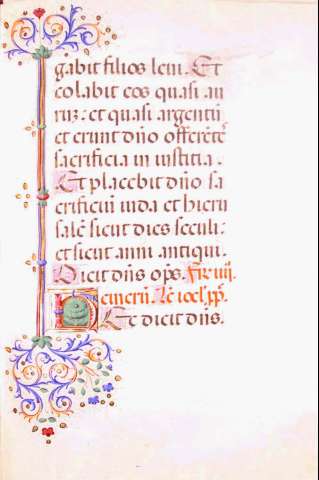 gabit filios leui. Et
colabit eos quasi au
rũ: et quasi argentũ
et erunt dño offerẽtes
sacrificia in iustitia.
Et placebit dño sa
crificiũ iuda et hieru
salẽ sicut dies seculi:
et sicut anni antiqui.
Dicit dñs op̃s. Fr̃
Lc̃ ioel. pp̃.
Ec dicit dñs.